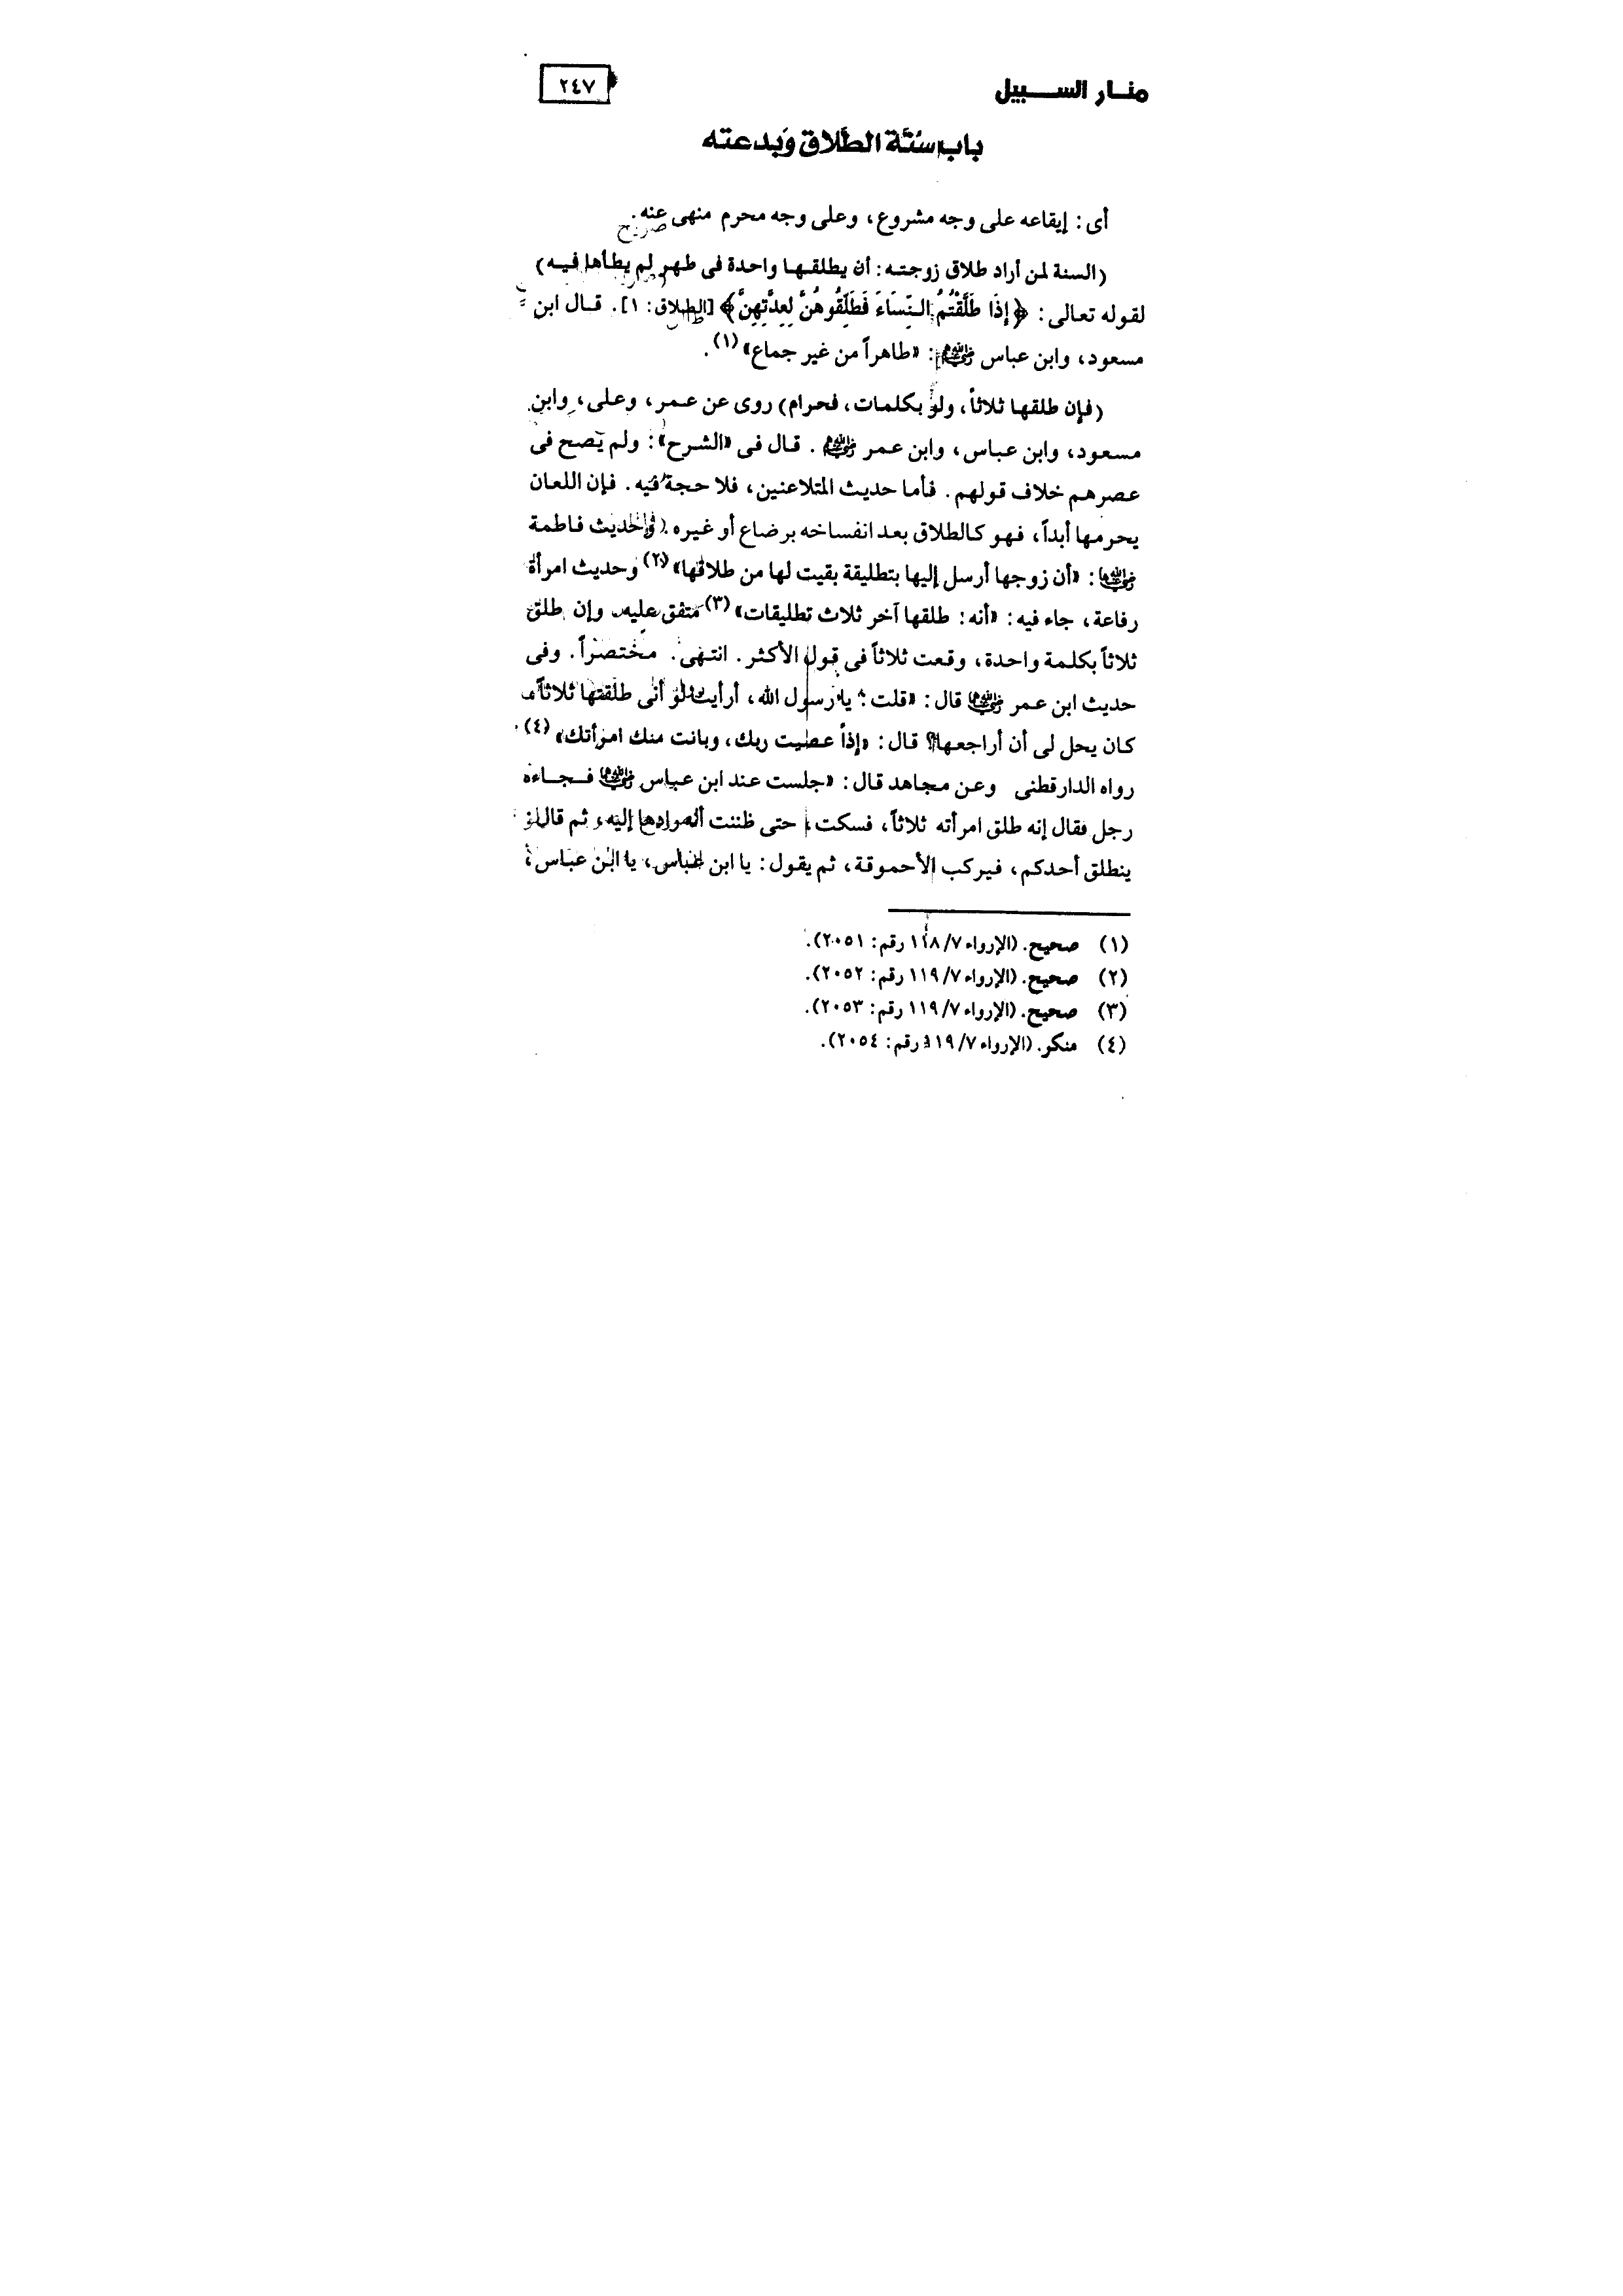 منار السبيل
٢٤٧
باب سنة الطلاق وبدعته
أى: إيقاعه على وجه مشروع، وعلى وجه محرم منهى عنه.
(السنة لمن أراد طلاق زوجته: أن يطلقها واحدة فى طهر لم يطأها فيه)
لقوله تعالى: ﴿إِذَا طَلَّقْتُمُ النِّسَاءَ فَطَلِّقُوهُنَّ لِعِدَّتِهِنَّ﴾ [الطلاق: ١]. قال ابن
مسعود، وابن عباس رضي الله عنهم: «طاهراً من غير جماع»(١).
(فإن طلقها ثلاثاً، ولو بكلمات، فحرام) روى عن عمر، وعلى، وابن
مسعود، وابن عباس، وابن عمر رضي الله عنهم. قال فى «الشرح»: ولم يصح فى
عصرهم خلاف قولهم. فأما حديث المتلاعنين، فلا حجة فيه. فإن اللعان
يحرمها أبداً، فهو كالطلاق بعد انفساخه برضاع أو غيره. وحديث فاطمة
رضي الله عنها: «أن زوجها أرسل إليها بتطليقة بقيت لها من طلاقها»(٢) وحديث امرأة
رفاعة، جاء فيه: «أنه: طلقها آخر ثلاث تطليقات»(٣) متفق عليه. وإن طلق
ثلاثاً بكلمة واحدة، وقعت ثلاثاً فى قول الأكثر. انتهى. مختصراً. وفى
حديث ابن عمر رضي الله عنهما قال: «قلت: يا رسول الله، أرأيت لو أنى طلقتها ثلاثاً
كان يحل لى أن أراجعها؟ قال: «إذاً عصيت ربك، وبانت منك امرأتك»(٤).
رواه الدارقطنى وعن مجاهد قال: «جلست عند ابن عباس رضي الله عنهما فجاءه
رجل فقال إنه طلق امرأته ثلاثاً، فسكت، حتى ظننت أنه رادها إليه، ثم قال:
ينطلق أحدكم، فيركب الأحموقة، ثم يقول: يا ابن عباس، يا ابن عباس،
(١) صحيح. (الإرواء ٧/١١٨ رقم: ٢٠٥١).
(٢) صحيح. (الإرواء ٧/١١٩ رقم: ٢٠٥٢).
(٣) صحيح. (الإرواء ٧/١١٩ رقم: ٢٠٥٣).
(٤) منكر. (الإرواء ٧/١١٩ رقم: ٢٠٥٤).